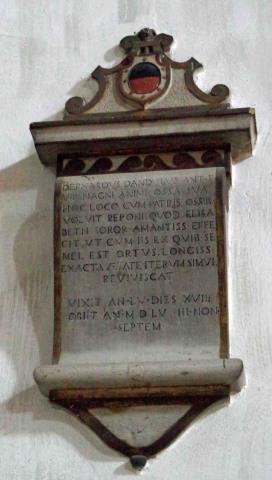 BERNARDVS DANDVLVS ANT F
VIR MAGNI ANIMI OSSA SVA
HVIC LOCO CVM PATRIS OSSIB
VOLVIT REPONI QVOD ELISA
BETH SOROR AMANTISS EFFE
CIT VT CVM IIS EX QVIB SE
MEL EST ORTVS LONGISS
EXACTA ÆTATE ITERVM SIMVL
REVIVISCAT
VIXIT AN LV DIES XVIII
OBIIT AN M D LV III NON
SEPTEM